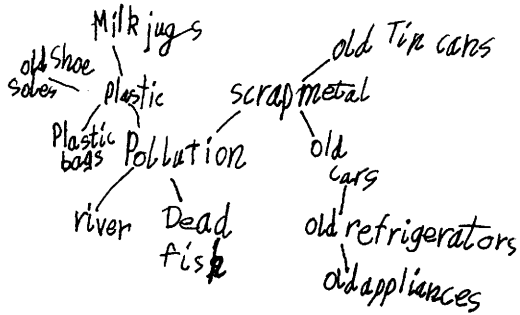 Milk jugs
old Shoe
soles
Plastic
Plastic
bags
Pollution
river
Dead
fish
scrap metal
old Tin cans
old
cars
old refrigerators
old appliances